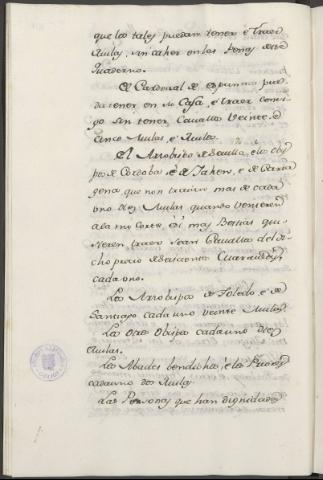 que los tales puedan tener e traer
Mulas, sin caher en las Penas deste
Quaderno.
El Cardenal de espanna pue
da tener en su Casa, e traer consi
go sin tener Cavallos veinte e
cinco Mulas, e Mulos.
El Arzobispo de Sevilla, e los obis
pos de Cordoba e de Jahen, e de Carta
gena que non traian mas de cada
uno diez Mulas quando venieren
a la mi Corte, e si mas Bestias qui
sieren traer sean Cavallos del di
cho precio de seiscientos maravedis
cada uno.
Los Arzobispos de Toledo e de
Santiago cada uno veinte Mulas.
Los otros Obispos cada uno diez
Mulas.
Los Abades benditos, e los Priores
cada uno dos Mulas
Las Personas que han dignidades